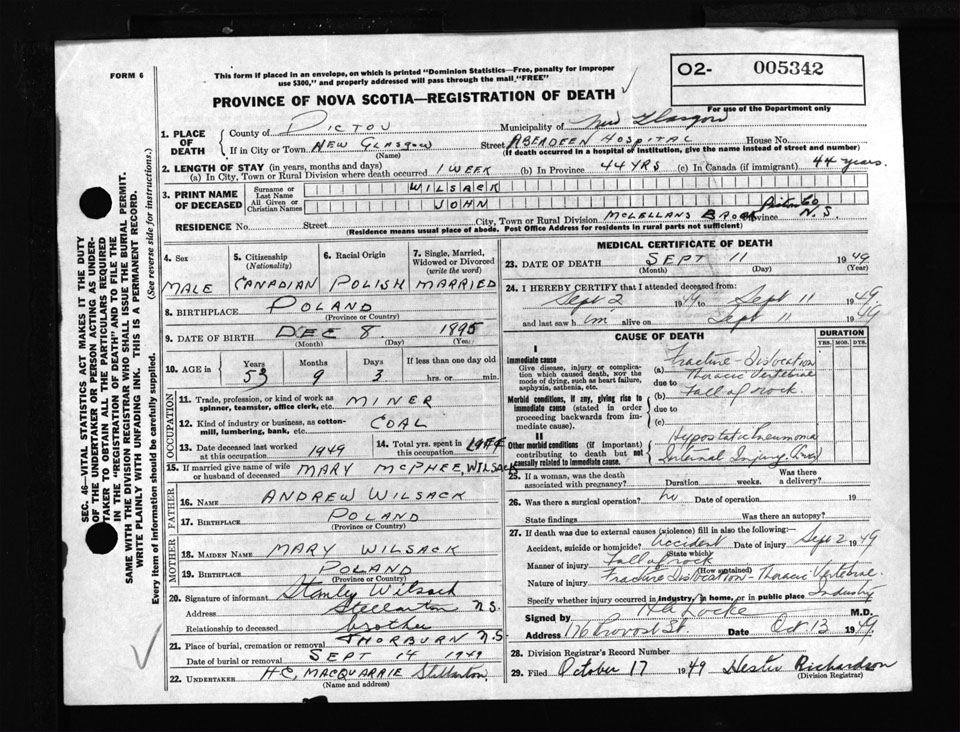 FORM 6
This form if placed in an envelope, on which is printed "Dominion Statistics—Free, penalty for improper
use $300," and properly addressed will pass through the mail "FREE"
PROVINCE OF NOVA SCOTIA—REGISTRATION OF DEATH
O2- 005342
For use of the Department only
1. PLACE OF DEATH
County of PICTOU Municipality of New Glasgow
If in City or Town NEW GLASGOW (Name) Street ABERDEEN HOSPITAL House No.
(If death occurred in a hospital or institution, give the name instead of street and number)
2. LENGTH OF STAY (in years, months and days)
(a) In City, Town or Rural Division where death occurred 1 WEEK (b) In Province 44 YRS (c) In Canada (if immigrant) 44 years.
3. PRINT NAME OF DECEASED
Surname or Last Name WILSACK
All Given or Christian Names JOHN
RESIDENCE No. Street City, Town or Rural Division MCLELLANS BROOK Pictou Co Province N.S.
(Residence means usual place of abode. Post Office Address for residents in rural parts not sufficient)
4. Sex 5. Citizenship (Nationality) 6. Racial Origin 7. Single, Married, Widowed or Divorced (write the word)
MALE CANADIAN POLISH MARRIED
8. BIRTHPLACE POLAND
(Province or Country)
9. DATE OF BIRTH DEC 8 1895
(Month) (Day) (Year)
10. AGE in Years 53 Months 9 Days 3 If less than one day old hrs. or min.
OCCUPATION
11. Trade, profession, or kind of work as spinner, teamster, office clerk, etc. MINER
12. Kind of industry or business, as cotton-mill, lumbering, bank, etc. COAL
13. Date deceased last worked at this occupation 1949 14. Total yrs. spent in this occupation
15. If married give name of wife or husband of deceased MARY MCPHEE, WILSACK
FATHER
16. NAME ANDREW WILSACK
17. BIRTHPLACE POLAND
(Province or Country)
MOTHER
18. MAIDEN NAME MARY WILSACK
19. BIRTHPLACE POLAND
(Province or Country)
20. Signature of informant Stanley Wilsack
Address Stellarton N.S.
Relationship to deceased brother
21. Place of burial, cremation or removal THORBURN N.S
Date of burial or removal SEPT 14 1949
22. UNDERTAKER H.C. MACQUARRIE Stellarton
(Name and address)
MEDICAL CERTIFICATE OF DEATH
23. DATE OF DEATH SEPT 11 1949
(Month) (Day) (Year)
24. I HEREBY CERTIFY that I attended deceased from:
Sept 2 1949 to Sept 11 1949
and last saw h im alive on Sept 11 1949
CAUSE OF DEATH DURATION
YRS. MOS. DYS.
I
Immediate cause
Give disease, injury or complication which caused death, not the mode of dying, such as heart failure, asphyxia, asthenia, etc.
(a) Fracture - Dislocation
Thoracic Vertebrae
due to
Morbid conditions, if any, giving rise to immediate cause (stated in order proceeding backwards from immediate cause).
(b) Fall of rock
due to
(c)
II
Other morbid conditions (if important) contributing to death but not causally related to immediate cause.
Hypostatic Pneumonia
Internal Injury
25. If a woman, was the death associated with pregnancy? Duration weeks. Was there a delivery?
26. Was there a surgical operation? no Date of operation 19
State findings Was there an autopsy?
27. If death was due to external causes (violence) fill in also the following:—
Accident, suicide or homicide? Accident Date of injury Sept 2 1949
(State which)
Manner of injury Fall of rock
(How sustained)
Nature of injury Fracture Dislocation - Thoracic Vertebrae.
Specify whether injury occurred in industry, in home, or in public place Industry
Signed by Locke M.D.
Address 176 Provost St. Date Oct 13 1949.
28. Division Registrar's Record Number
29. Filed October 17 1949 Hester Richardson
(Division Registrar)
SEC. 46—VITAL STATISTICS ACT MAKES IT THE DUTY
OF THE UNDERTAKER OR PERSON ACTING AS UNDER-
TAKER TO OBTAIN ALL THE PARTICULARS REQUIRED
IN THE "REGISTRATION OF DEATH" AND TO FILE THE
SAME WITH THE DIVISION REGISTRAR WHO SHALL ISSUE THE BURIAL PERMIT.
WRITE PLAINLY WITH UNFADING INK. THIS IS A PERMANENT RECORD.
Every item of information should be carefully supplied. (See reverse side for instructions.)